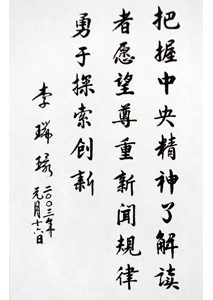 把握中央精神了解读
者愿望尊重新闻规律
勇于探索创新
李瑞环
二〇〇三年
元月十六日